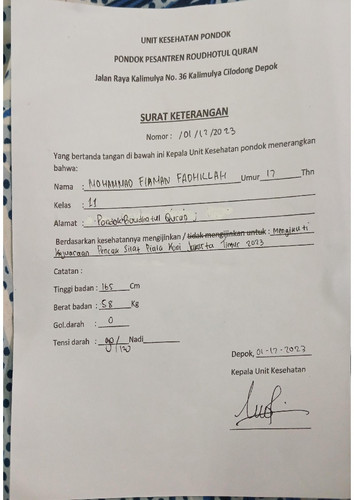 UNIT KESEHATAN PONDOK
PONDOK PESANTREN ROUDHOTUL QURAN
Jalan Raya Kalimulya No. 36 Kalimulya Cilodong Depok
SURAT KETERANGAN
Nomor : /01/12/2023
Yang bertanda tangan di bawah ini Kepala Unit Kesehatan pondok menerangkan
bahwa:
Nama : MOHAMMAD FIRMAN FADHILLAH Umur 17 Thn
Kelas : 11
Alamat : Pondok Roudhotul Quran
Berdasarkan kesehatannya mengijinkan / tidak mengijinkan untuk : Mengikuti
Kejuaraan Pencak Silat Piala Koni Jakarta Timur 2023
Catatan :
Tinggi badan : 165 Cm
Berat badan : 58 Kg
Gol.darah : O
Tensi darah : Nadi
Depok, 01-12-2023
Kepala Unit Kesehatan